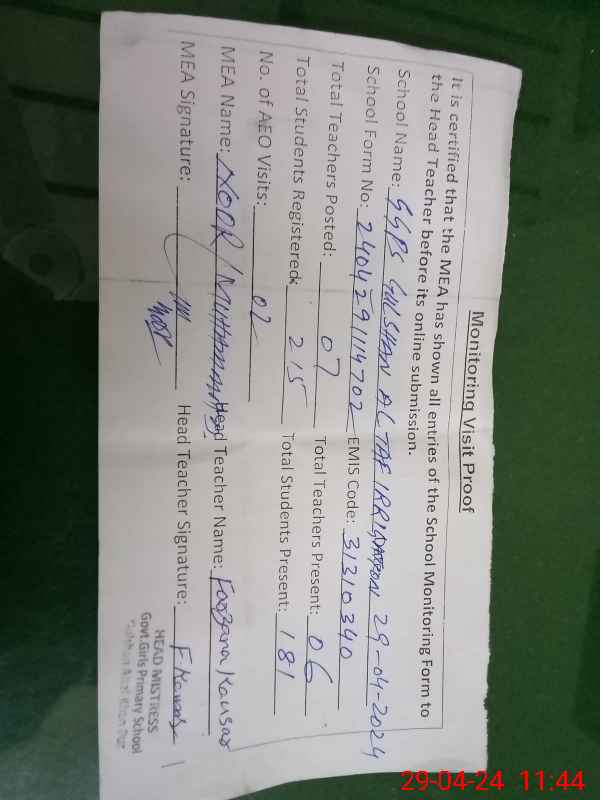 Monitoring Visit Proof
It is certified that the MEA has shown all entries of the School Monitoring Form to
the Head Teacher before its online submission.
School Name: GGPS GULSHAN ALTAF IRRIGATION 29-04-2024
School Form No: 24042911114702 EMIS Code: 31310340
Total Teachers Posted: 07 Total Teachers Present: 06
Total Students Registered: 215 Total Students Present: 181
No. of AEO Visits: 02
MEA Name: NOOR MUHAMMAD Head Teacher Name: Fouzana Kausar
MEA Signature: Head Teacher Signature: F Kousar
HEAD MISTRESS
Govt.Girls Primary School
29-04-24 11:44